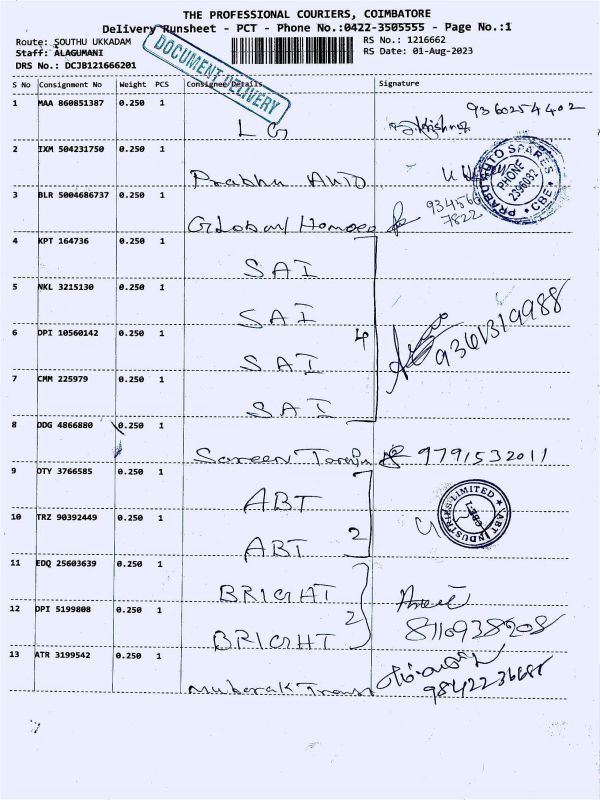 THE PROFESSIONAL COURIERS, COIMBATORE
Delivery Runsheet - PCT - Phone No.:0422-3505555 - Page No.:1
Route: SOUTHU UKKADAM
RS No.: 1216662
Staff: ALAGUMANI
RS Date: 01-Aug-2023
DRS No.: DCJB121666201
DOCUMENT DELIVERY
S No Consignment No Weight PCS Consignee Details Signature
1 MAA 860851387 0.250 1
LG 9360254402
2 IXM 504231750 0.250 1
Prabhu Auto
PRABU AUTO SPARES PHONE 2396032 * CBE *
3 BLR 5004686737 0.250 1
Global Homoeo 934566 7822
4 KPT 164736 0.250 1
SAI
5 NKL 3215130 0.250 1
SAI
6 DPI 10560142 0.250 1
SAI 4 9361319988
7 CMM 225979 0.250 1
SAI
8 DDG 4866880 0.250 1
Sareen 9791532011
9 OTY 3766585 0.250 1
ABT
ABT INDUSTRIES LIMITED CBE-1
10 TRZ 90392449 0.250 1
ABT 2
11 EDQ 25603639 0.250 1
BRIGHT
12 DPI 5199808 0.250 1
BRIGHT 2 8110938208
13 ATR 3199542 0.250 1
Mubarak Trans